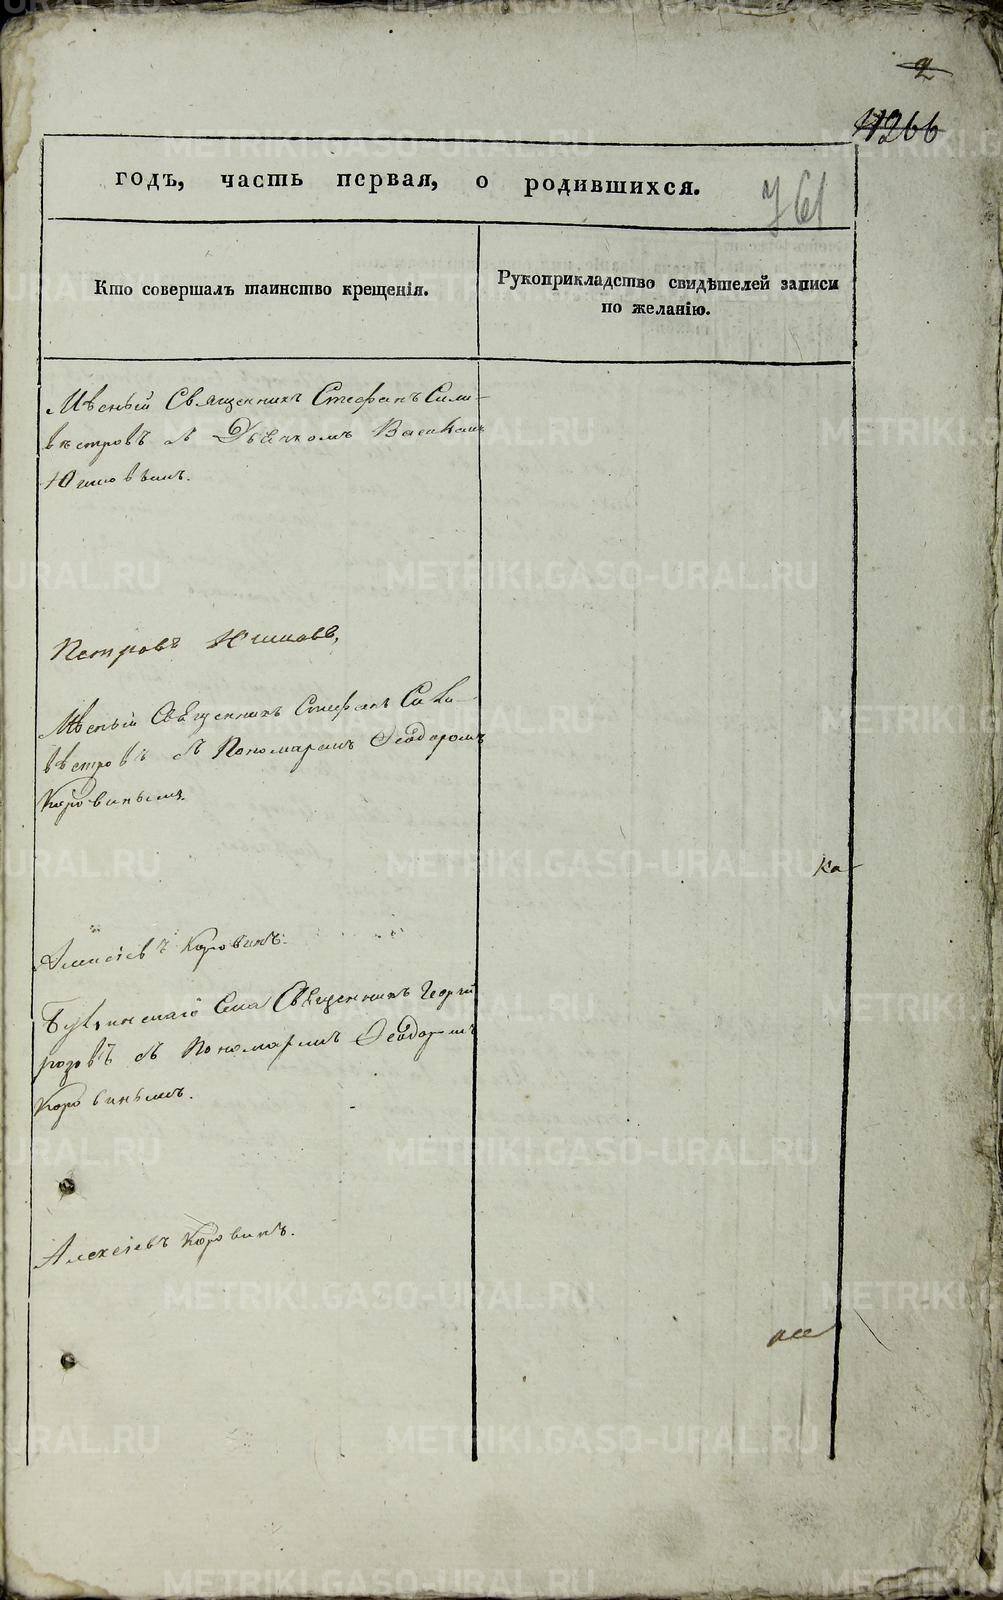 2
1266
годъ, часть первая, о родившихся.
761
Кто совершалъ таинство крещенія.
Рукоприкладство свидѣтелей записи
по желанію.
Мѣсный Священникъ Стефанъ Сили-
вѣстровъ съ Дьячкомъ
Юшковымъ.
Петровъ Юшковъ,
Мѣсный Священникъ Стефанъ Сили-
вѣстровъ съ Пономаремъ Ѳеодоромъ
Коровинымъ.
ка
Алексіевъ Коровинъ.
Села Священникъ Георгій
съ Пономаремъ Ѳеодоромъ
Коровинымъ.
Алексіевъ Коровинъ.
METRIKI.GASO-URAL.RU